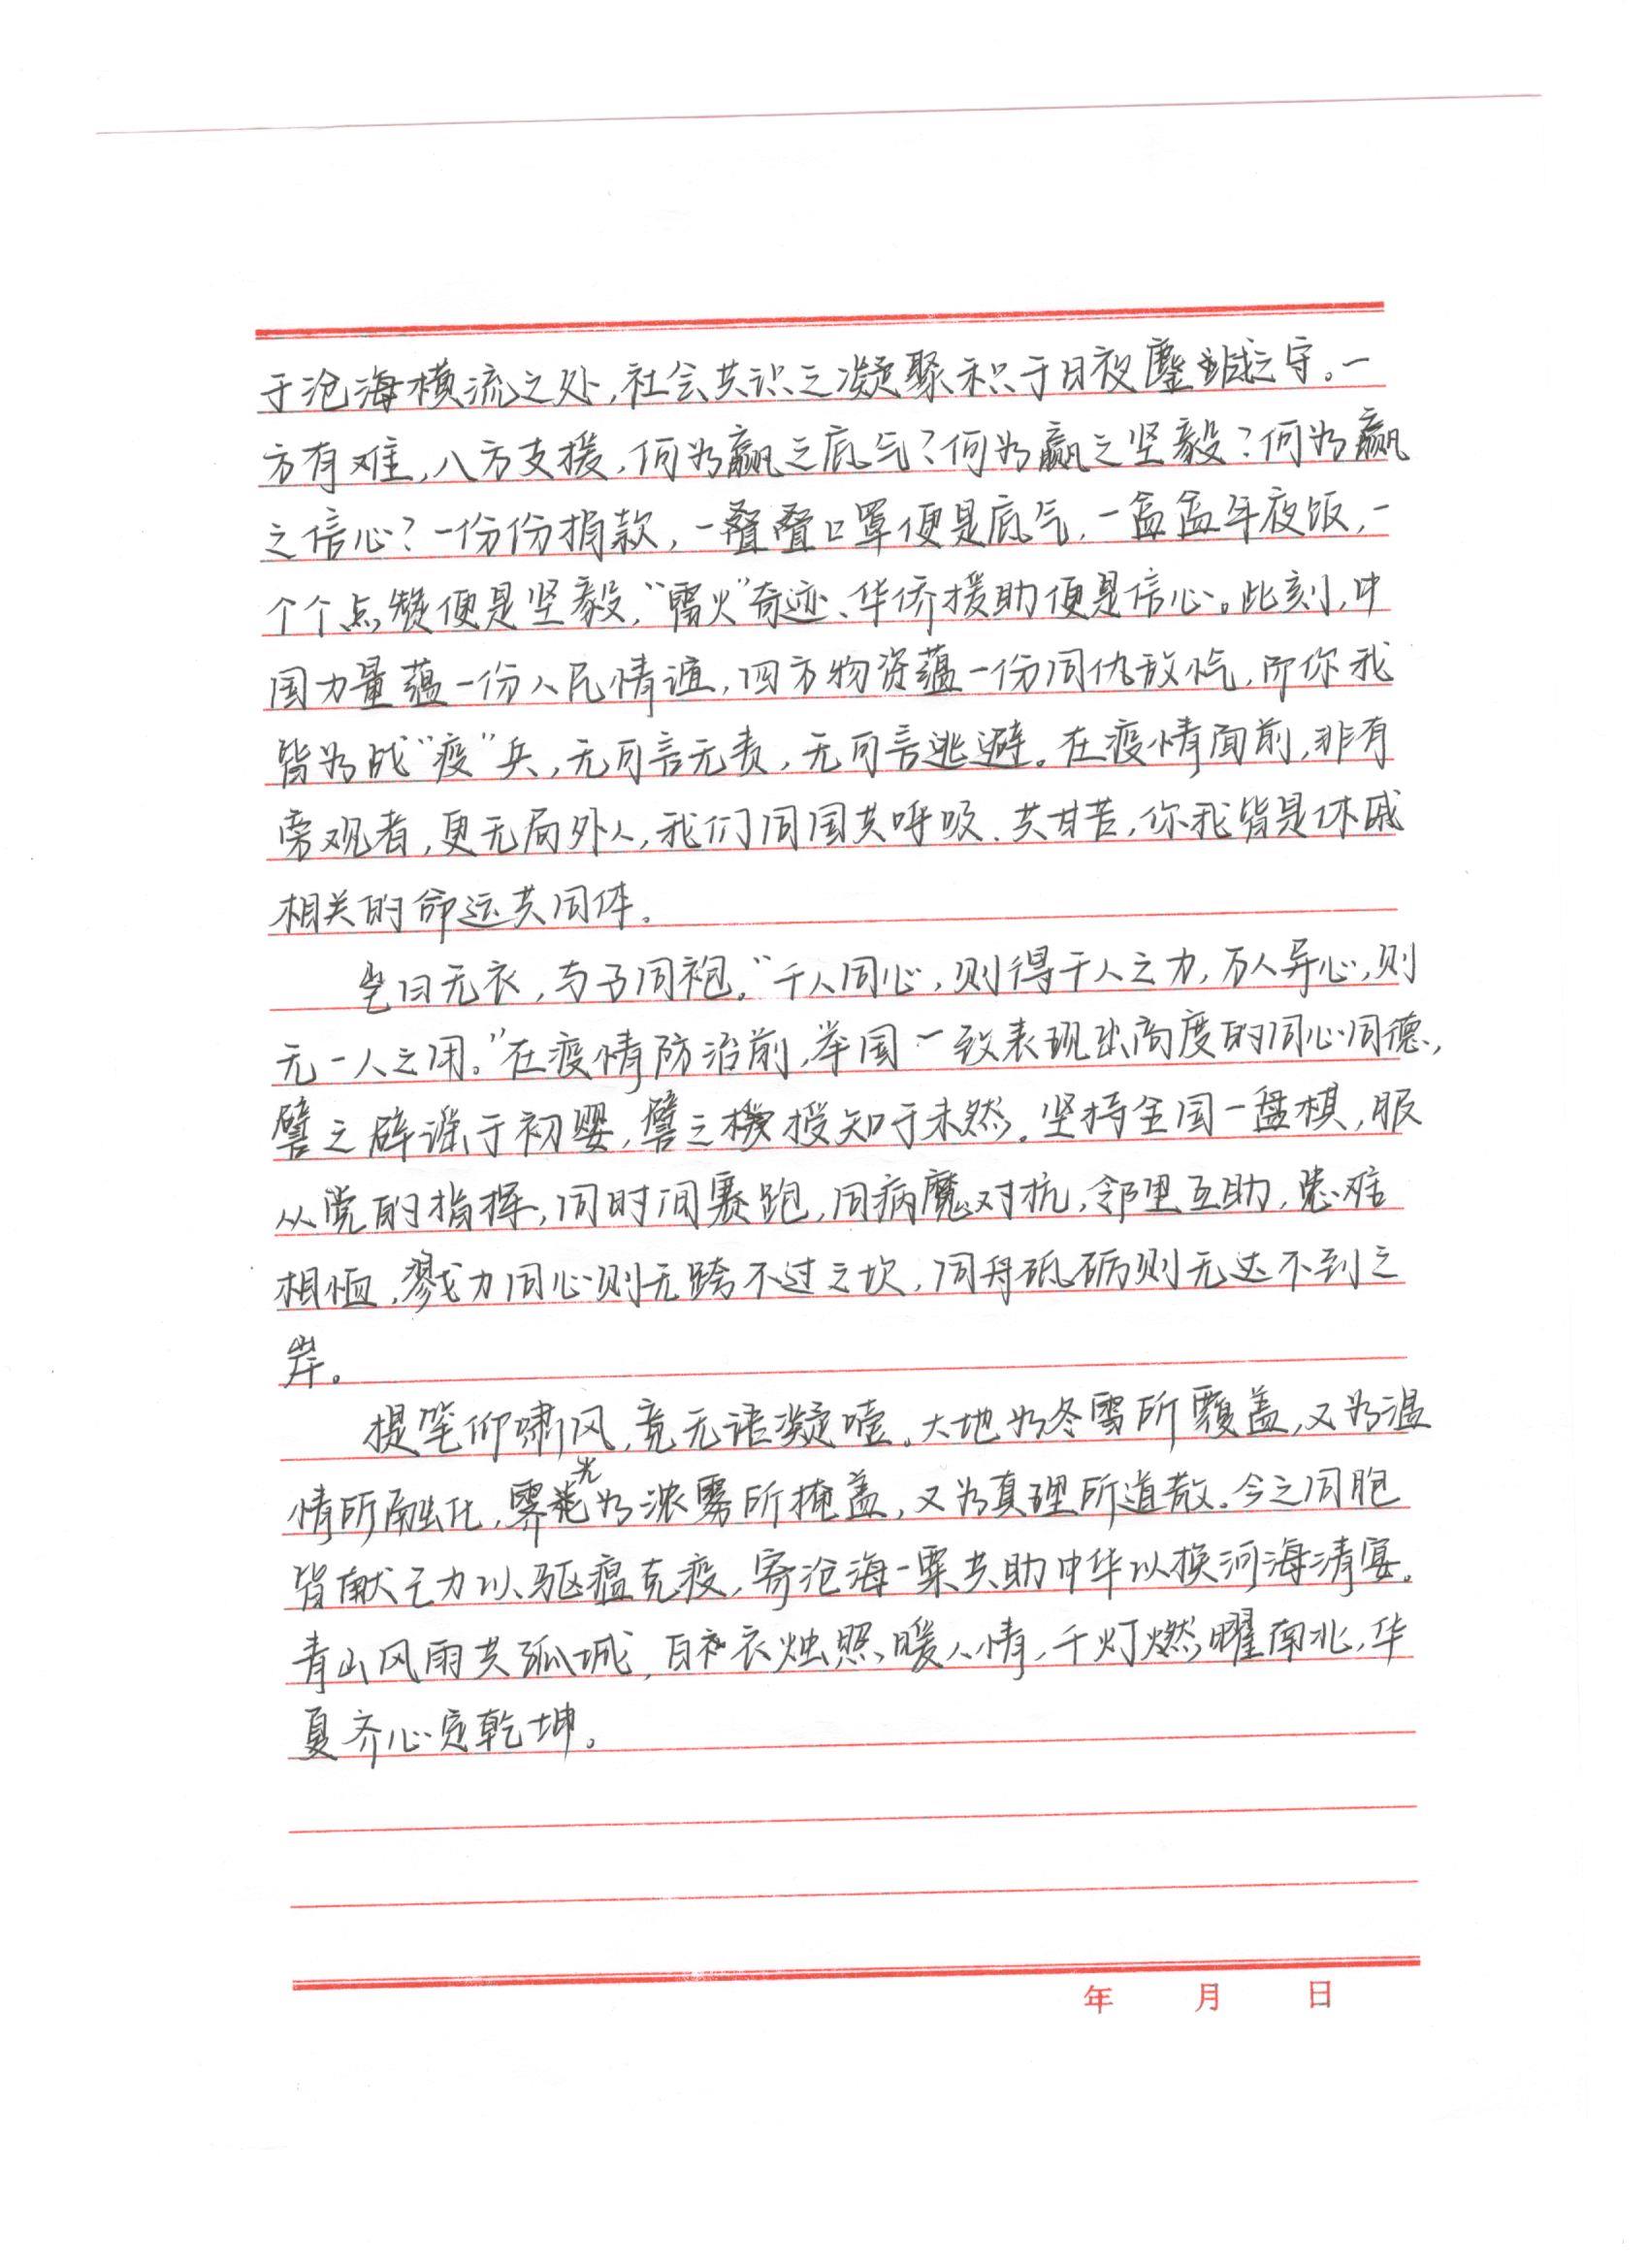 于沧海横流之处,社会共识之凝聚积于日夜鏖战之守。一
方有难,八方支援,何为赢之底气?何为赢之坚毅?何为赢
之信心?一份份捐款,一叠叠口罩便是底气,一盒盒年夜饭,一
个个点赞便是坚毅,“雷火”奇迹、华侨援助便是信心。此刻,中
国力量蕴一份人民情谊,四方物资蕴一份同仇敌忾,即你我
皆为战“疫”兵,无可言无责,无可言逃避。在疫情面前,非有
旁观者,更无局外人,我们同国共呼吸、共甘苦,你我皆是休戚
相关的命运共同体。
岂曰无衣,与子同袍。“千人同心,则得千人之力,万人异心,则
无一人之用。”在疫情防治前,举国一致表现出高度的同心同德,
譬之辟谣于初婴,譬之授知于未然。坚持全国一盘棋,服
从党的指挥,同时间赛跑,同病魔对抗,邻里互助,患难
相恤,戮力同心则无跨不过之坎,同舟砥砺则无达不到之
岸。
提笔仰啸风,竟无语凝噎。大地为冬雪所覆盖,又为温
情所融化,霁光为浓雾所掩盖,又为真理所道散。今之同胞
皆献己力以驱瘟克疫,寄沧海一粟共助中华以换河海清宴。
青山风雨共孤城,白衣烛照暖人情,千灯燃曜南北,华
夏齐心定乾坤。
年 月 日